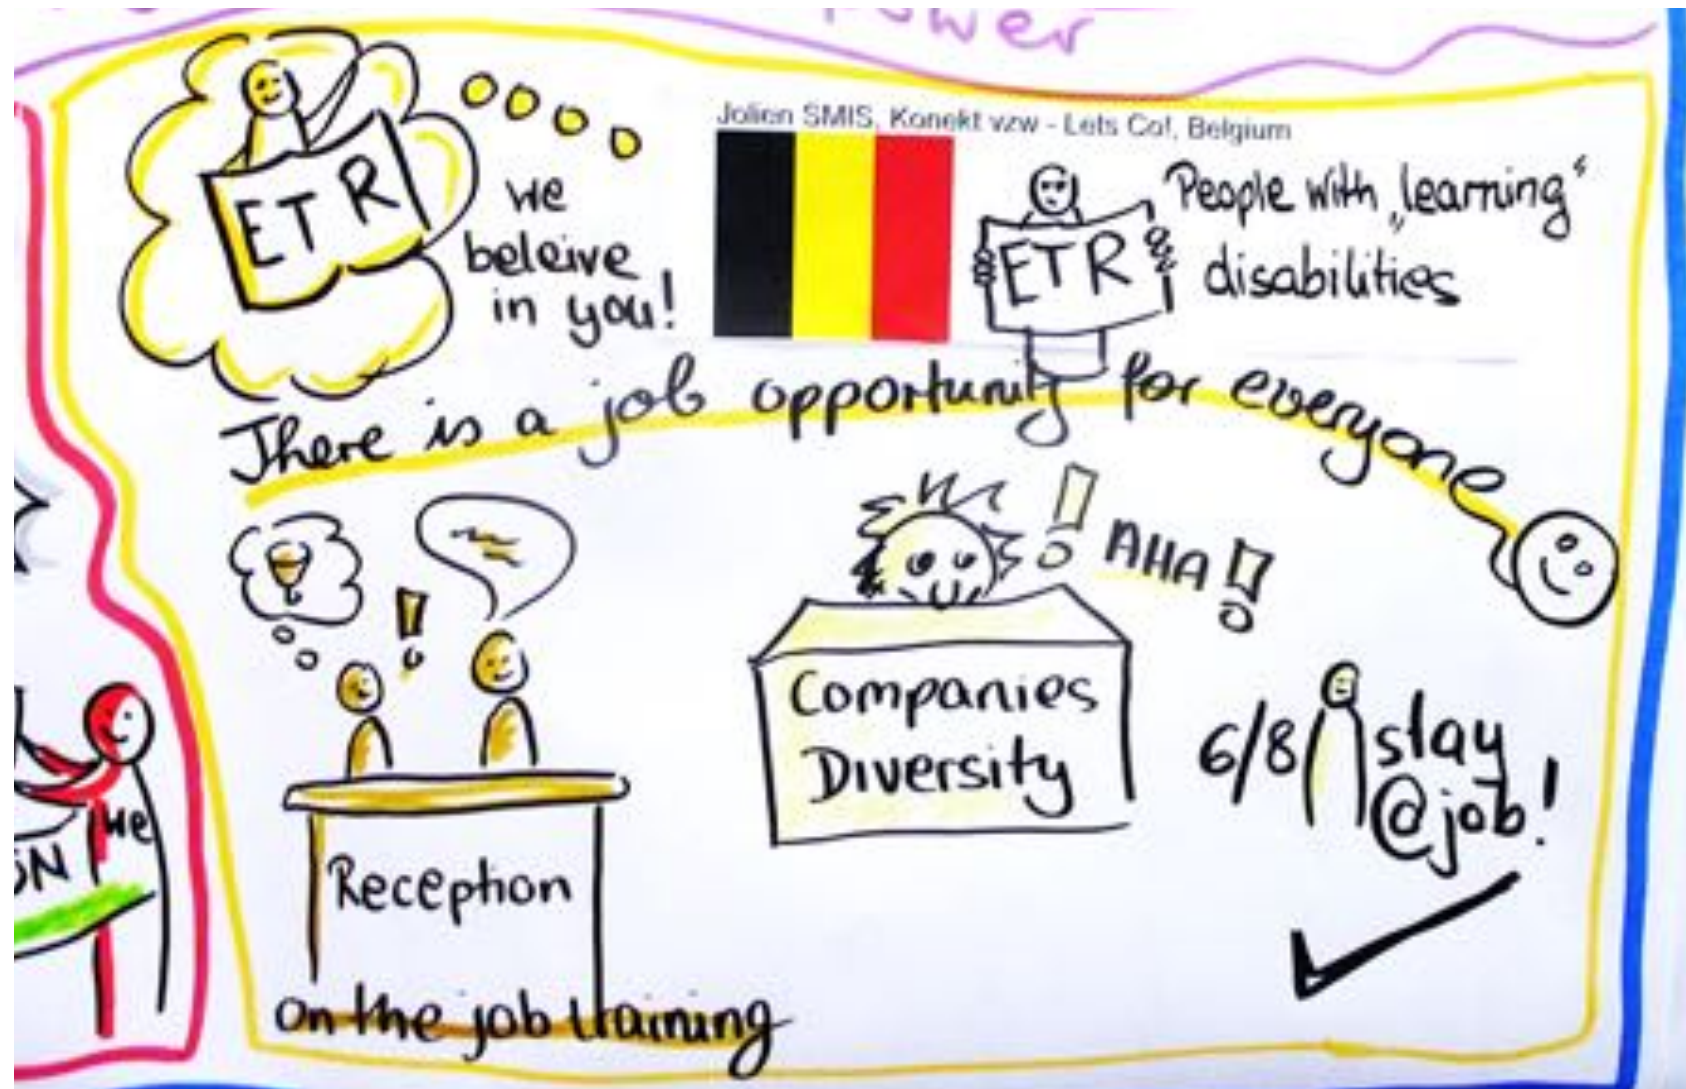 Power
Jolien SMIS, Konekt vzw - Lets Co!, Belgium
ETR
We
beleive
in you!
ETR
People with „learning“
disabilities
There is a job opportunity for everyone
! AHA!
!
Companies
Diversity
6/8 stay
@job!
He
Reception
on the job training